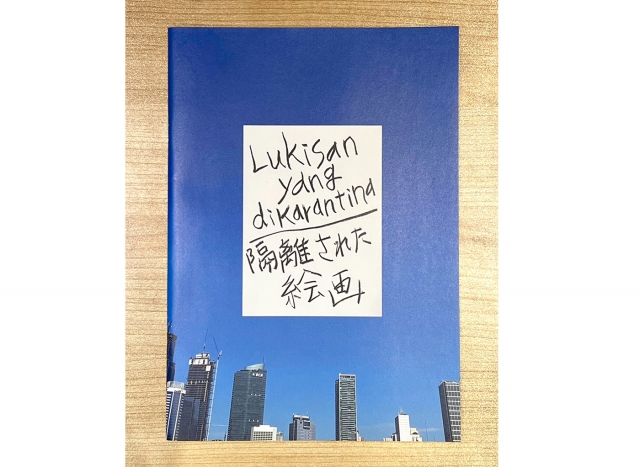 Lukisan
yang
dikarantina
隔離された
絵画